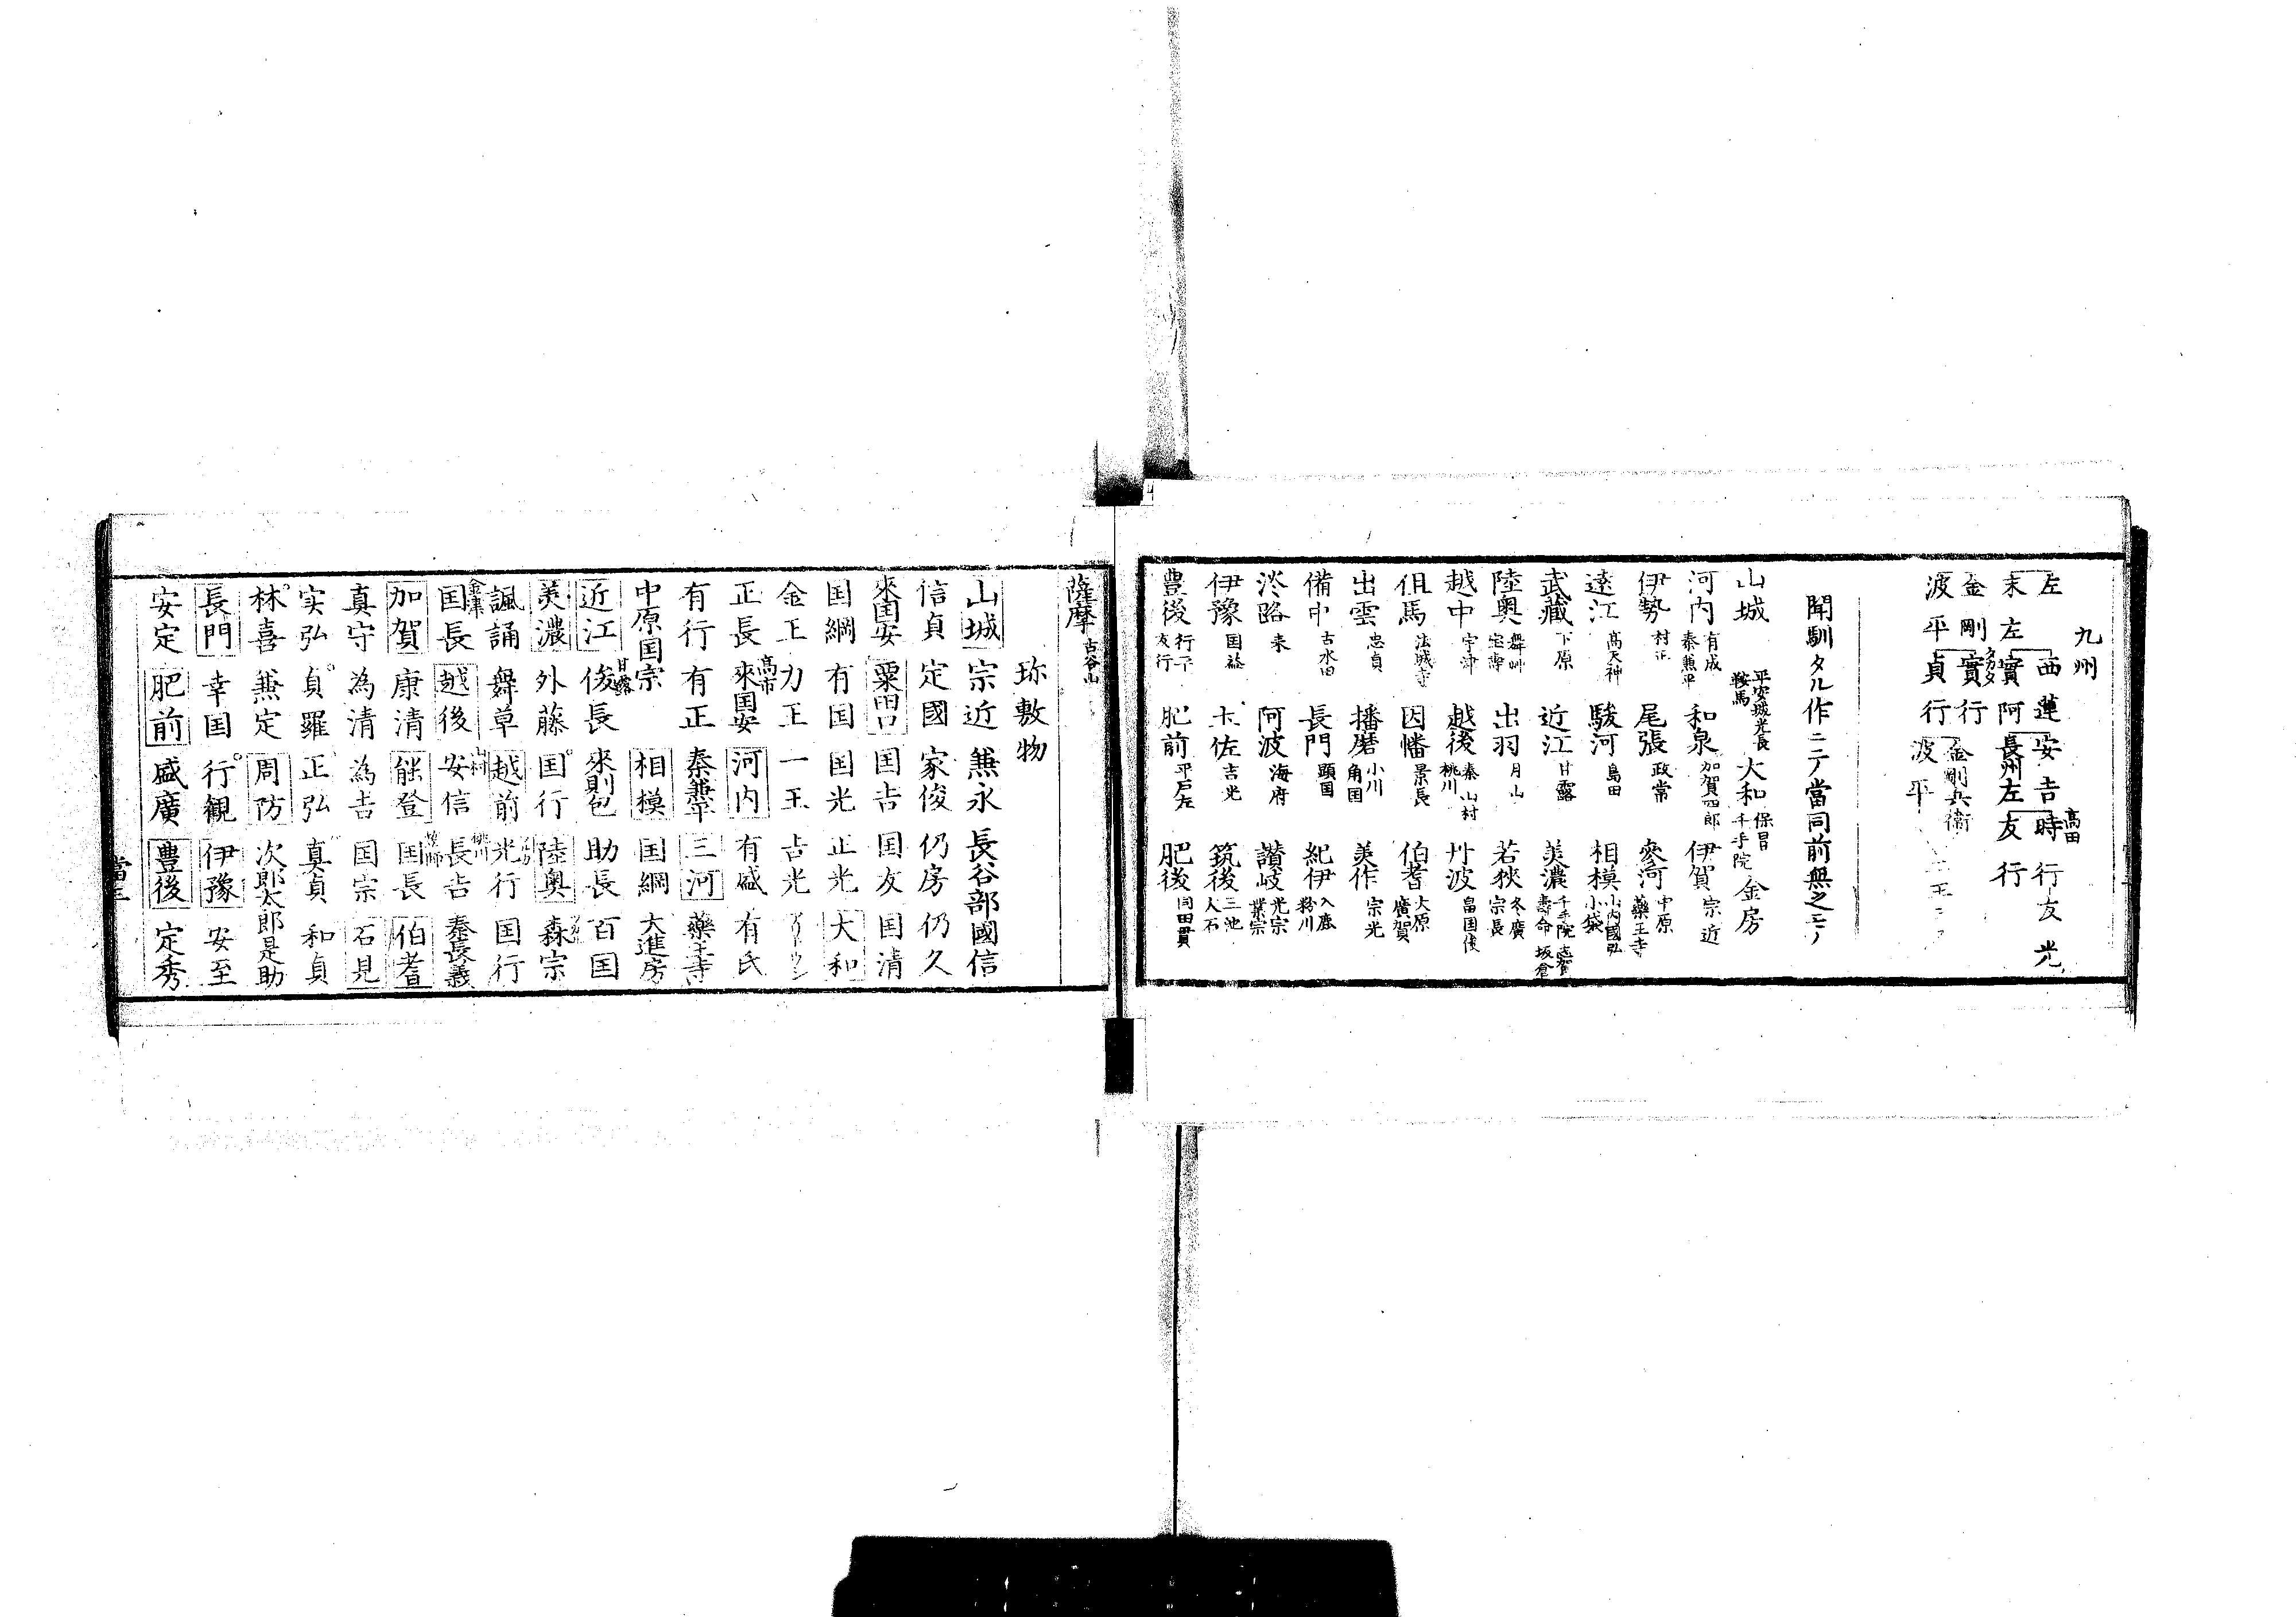 九州
左 西蓮 安吉 時行 友光
高田
末左 實阿 長州左 友行
金剛 實行 金剛兵衛
波平 貞行 波平
聞馴タル作ニテ當同前無之モノ
山城 平安城光長 鞍馬 大和 保昌 千手院 金房
河内 有成 秦兼平 和泉 加賀四郎 伊賀 宗近
伊勢 村正 尾張 政常 参河 中原 藥王寺
遠江 高天神 駿河 島田 相模 小内國弘 小袋
武藏 下原 近江 甘露 美濃 千手院 志賀 壽命 坂倉
陸奥 舞艸 宝壽 出羽 月山 若狹 冬廣 宗長
越中 宇津 越後 秦 山村 桃川 丹波 畠国俊
但馬 法城寺 因幡 景長 伯耆 大原 廣賀
出雲 忠貞 播磨 小川 角国 美作 宗光
備中 古水田 長門 顕国 紀伊 入鹿 粉川
淡路 来 阿波 海府 讃岐 光宗 業宗
伊豫 国益 土佐 吉光 筑後 三池 大石
豊後 行平 友行 肥前 平戸左 肥後 同田貫
薩摩 古谷山
珎敷物
山城 宗近 兼永 長谷部國信
信貞 定國 家俊 仍房 仍久
來国安 粟田口 国吉 国友 国清
国綱 有国 国光 正光 大和
金王 力王 一王 吉光
正長 高市 來国安 河内 有盛 有氏
有行 有正 秦兼平 三河 藥王寺
中原国宗 相模 国綱 大進房
近江 甘露 俊長 來則包 助長 百国
美濃 外藤 国行 陸奥 森宗
諷誦 舞草 越前 光行 国行
金津 国長 越後 山村 安信 桃川 長吉 秦長義
加賀 康清 能登 国長 伯耆
真守 為清 為吉 国宗 石見
実弘 貞羅 正弘 真貞 和貞
林喜 兼定 周防 次郎太郎是助
長門 幸国 行観 伊豫 安至
安定 肥前 盛廣 豊後 定秀